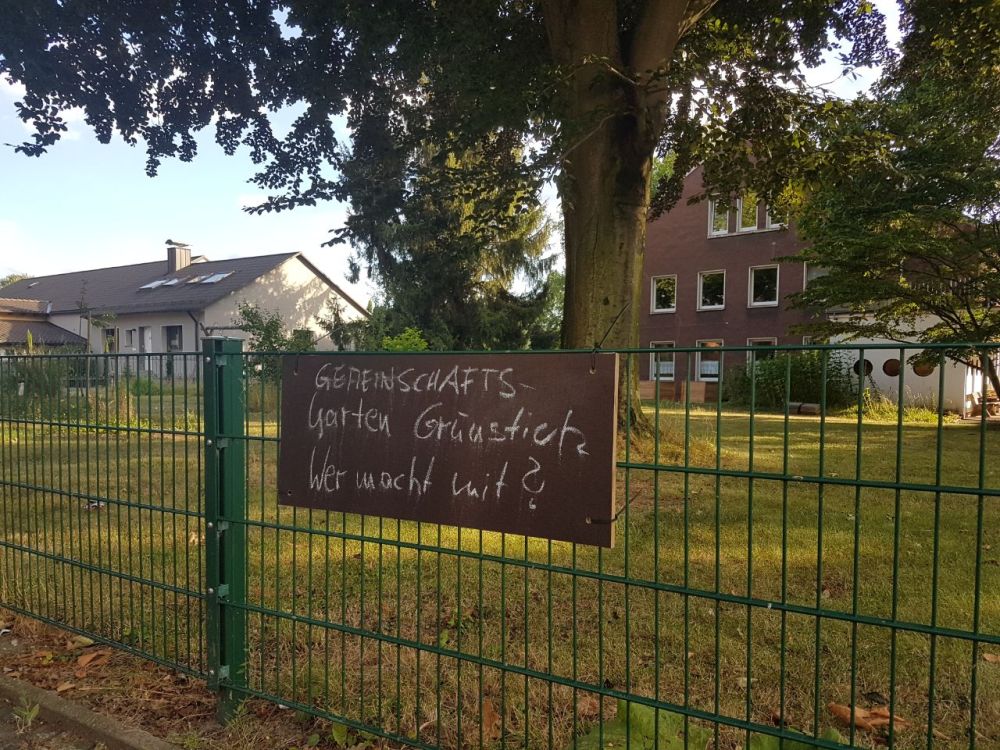 GEMEINSCHAFTS-
Garten Grünstich
Wer macht mit?